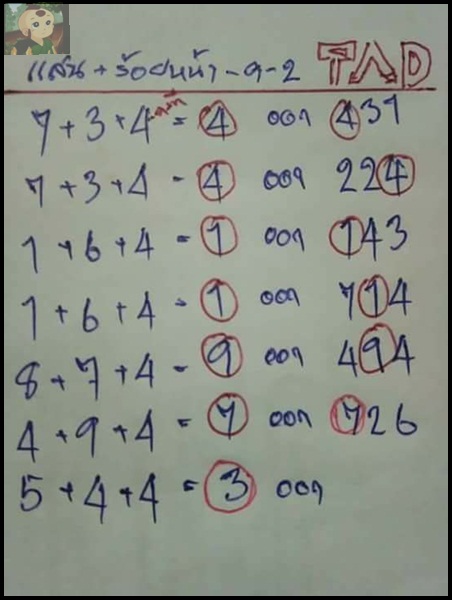 แสน + ร้อยหน้า - ๑ - 2 TAD
7 + 3 + 4 = 4 ออก 431
7 + 3 + 4 - 4 ออก 224
1 + 6 + 4 = 1 ออก 143
1 + 6 + 4 = 1 ออก 714
8 + 7 + 4 - 9 ออก 494
4 + 9 + 4 = 7 ออก 726
5 + 4 + 4 = 3 ออก